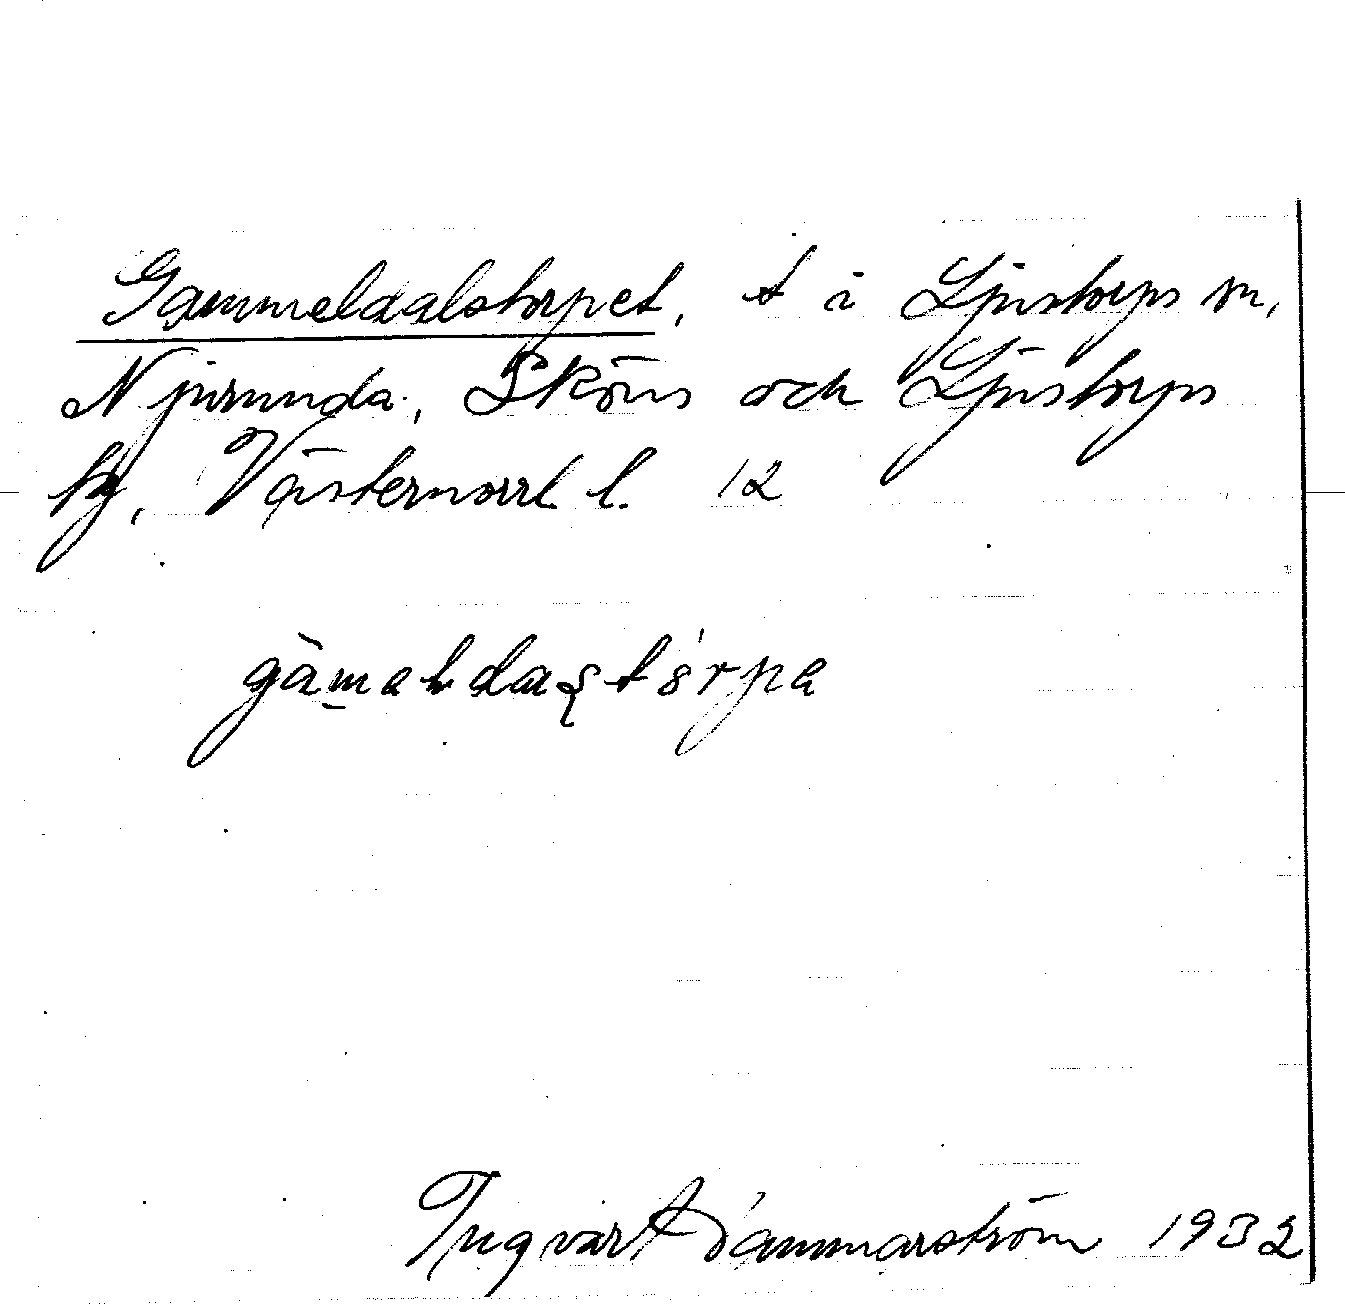 Gammeldalstorpet, t i Ljustorps sn,
Njurunda, Sköns och Ljustorps
tg, Västernorrl. l. 12
Ingvar Hammarström 1932